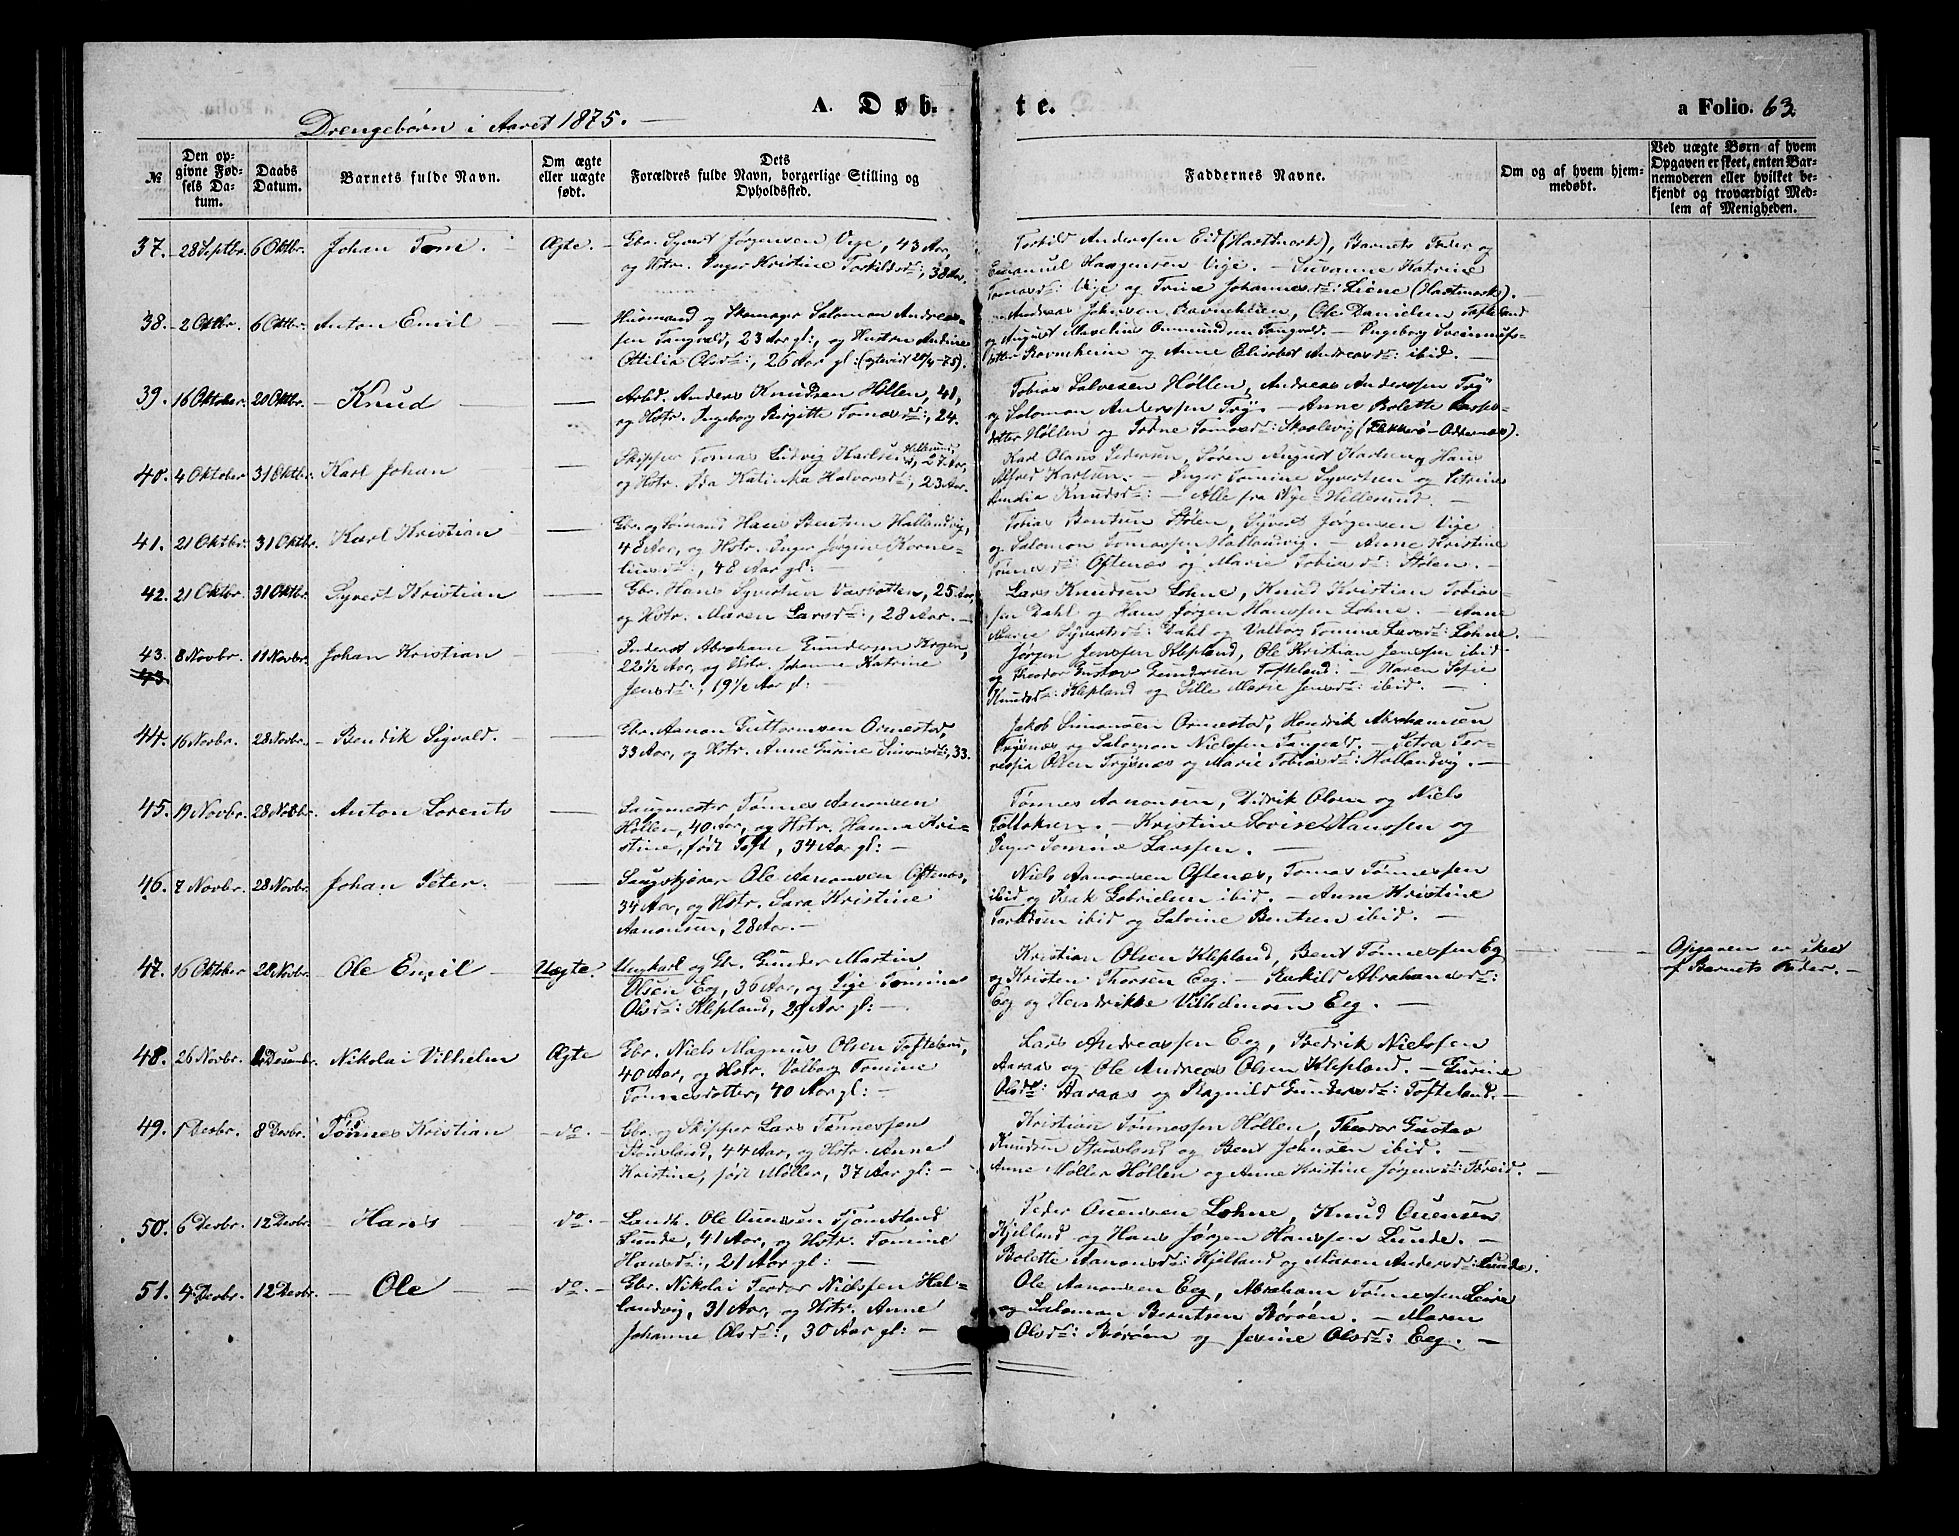 A. Døb-
te.
a Folio. 63
Drengebørn i Aaret 1875. —
№
Den op-
givne Fød-
sels Da-
tum.
Daabs
Datum.
Barnets fulde Navn.
Om ægte
eller uægte
født.
Dets
Forældres fulde Navn, borgerlige Stilling og
Opholdssted.
Faddernes Navne.
Om og af hvem hjem-
medøbt.
Ved uægte Børn af hvem
Opgaven er skeet, enten Bar-
nemoderen eller hvilket be-
kjendt og troværdigt Med-
lem af Menigheden.
37. 28 Septbr. 6 Oktbr. Johan Tom. Ægte. Gbr. Syvert Jørgensen Vige, 43 Aar,
og Hstr. Inger Kristine Torkildsdr:, 38 Aar.
Torkild Anderssen Eid (Hartmark), Barnets Fader og
Emanuel Haagensen Vige. — Susanne Katrine
Tomasdr: Vige og Trine Johannesdr: Liene (Hartmark). —
38. 2 Oktbr. 6 Oktbr. Anton Emil — Husmand og Skomager Salomon Andreas-
sen Tangvald, 23 Aar gl:, og Hustru Andrine
Ottilia Olsdr:, 26 Aar gl: (egteviet 20/4-75).
Andreas Johnsen Ravneheien, Ole Danielsen Tofteland
og August Marelius Ommundsen Tangvald. — Ingeborg
dotter Ravneheien og Anne Elisabet Andreasdr: ibid. —
39. 16 Oktober 20 Oktbr. — Knud — Arbd. Anders Knudsen Höllen, 41,
og Hstr. Ingeborg Birgitte Tomasdr:, 24.
Tobias Salvesen Höllen, Andreas Anderssen Try
og Salomon Anderssen Try. — Anne Bolette
dotter Höllen og Trine Tomasdr: Skaalevig (Flekkerø-Oddernæs).
40. 4 Oktober 31 Oktbr. Karl Johan — Skipper Tomas Ludvig Karlsen Hillesund, 27 Aar,
og Hstr. Ida Katinka Halvorsdr:, 23 Aar.
Karl Olaus Pedersen, Søren August Karlsen og Hans
Alfred Karlsen. — Inger Tomine Syvertsen og Petrine
Amalia Knudsdr: — Alle fra Ny-Hillesund. —
41. 21 Oktbr. 31 Oktbr. Karl Kristian — Gbr. og Sömand Hans Bentsen Hallandvig,
48 Aar, og Hstr. Inger Jørgine Korne-
liusdr:, 48 Aar gl: —
Tobias Bentsen Stölen, Syvert Jørgensen Vige
og Salomon Tomassen Hallandvig. — Anne Kristine
Tönnesdr: Oftenæs og Marie Tobiasdr: Stölen. —
42. 21 Oktbr. 31 Oktbr. Syvert Kristian — Gbr. Hans Syvertsen Vasbotten, 25 Aar,
og Hstr. Maren Larsdr:, 28 Aar. —
Lars Knudsen Lohne, Knud Kristian Tobias-
sen Dahl og Hans Jørgen Hanssen Lohne. — Anne
Marie Syvertsdr: Dahl og Valborg Tomine Larsdr: Lohne.
43. 8 Novbr. 11 Novbr. Johan Kristian — Inderst Abraham Gundersen Krogen,
22 1/2 Aar, og Hstr. Johanne Katrine
Jensdr:, 19 1/2 Aar gl: —
43
Jørgen Jenssen Klepland, Ole Kristian Jenssen ibid
og Theodor Gustav Gundersen Tofteland. — Maren Sofie
Knudsdr: Klepland og Sille Marie Jensdr: ibid. —
44. 16 Novbr. 28 Novbr. — Bendik Sigvald. — Gbr. Aanon Guttormsen Ormestad,
33 Aar, og Hstr. Anne Gurine Simonsdr:, 33.
Jakob Simonsen Ormestad, Hendrik Abrahamsen
Trysnæs og Salomon Nielssen Tangvald. — Petra Ter-
resia Olsen Trysnæs og Marie Tobiasdr: Hallandvig. —
45. 19 Novbr. 28 Novbr. Anton Lorents — Saugmester Tönnes Aanonsen
Höllen, 40 Aar, og Hstr. Hanna Kri-
stine, född Toft, 34 Aar gl: —
Tönnes Aanonsen, Didrik Olsen og Niels
Folloksen. — Kristine Lovise Hanssen og
Inger Tomine Larssen. —
46. 7 Novbr. 28 Novbr. Johan Peter. — Saugskjærer Ole Aanonsen Oftenæs,
34 Aar, og Hstr. Sara Kristine
Aanonsen, 28 Aar. —
Niels Aanonsen Oftenæs, Tomas Tönnessen
ibid og Isak Gabrielsen ibid. — Anne Kristine
Taraldsen ibid og Salvine Bentsen ibid. —
47. 16 Oktober 28 Novbr. Ole Emil — Uægte. Ungkarl og Gbr. Gunder Martin
Olsen Eeg, 36 Aar, og Pige Tomine
Olsdr: Klepland, 29 Aar gl: —
Kristian Olsen Klepland, Bent Tönnessen Eeg
og Kristen Thorsen Eeg. — Abrahamsdr:
Eeg og Hendrikke Vilhelmsen Eeg. —
Opgaven er skeet
af Barnets Fader. —
48. 26 Novbr. Decembr. Nikolai Vilhelm Ægte Gbr. Niels Magnus Olsen Tofteland,
40 Aar, og Hstr. Valborg Tomine
Tönnesdotter, 40 Aar gl: —
Lars Andreassen Eeg, Fredrik Nielssen
Aaraas og Ole Andreas Olsen Klepland. — Gurine
Olsdr: Aaraas og Ragnild Gundersdr: Tofteland. —
49. 1 Decbr. 8 Decbr. Tönnes Kristian — do. — Gbr. og Skipper Lars Tönnessen
Stausland, 44 Aar, og Hstr. Anne
Kristine, född Møller, 37 Aar gl: —
Kristian Tönnessen Höllen, Theodor Gustav
Knudsen Stausland og Bent Johnsen ibid. —
Anne Møller Höllen og Anne Kristine Jörgensdr: Föreid. —
50. 6 Decbr. 12 Decbr. — Hans — do. — Landh. Ole Ouensen Tjomsland
Lunde, 41 Aar, og Hstr. Tomine
Hansdr:, 21 Aar gl: —
Peder Ouensen Lohne, Knud Ouensen
Kjelland og Hans Jørgen Hanssen Lunde. —
Bolette Aanonsdr: Kjelland og Maren Andersdr: Lunde.
51. 4 Decbr. 12 Decbr. — Ole — do. — Gbr. Nikolai Teodor Nielssen Hal-
landvig, 31 Aar, og Hstr. Anne
Johanne Olsdr:, 30 Aar gl: —
Ole Aanonsen Eeg, Abraham Tönnessen Leire
og Salomon Berntsen Börøen. — Maren
Olsdr: Börøen og Jesine Olsdr: Eeg. —